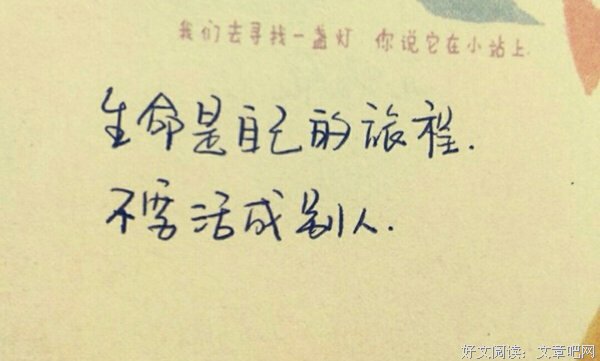 我们去寻找一盏灯 你说它在小站上.
生命是自己的旅程.
不要活成别人.
好文阅读: 文章吧网